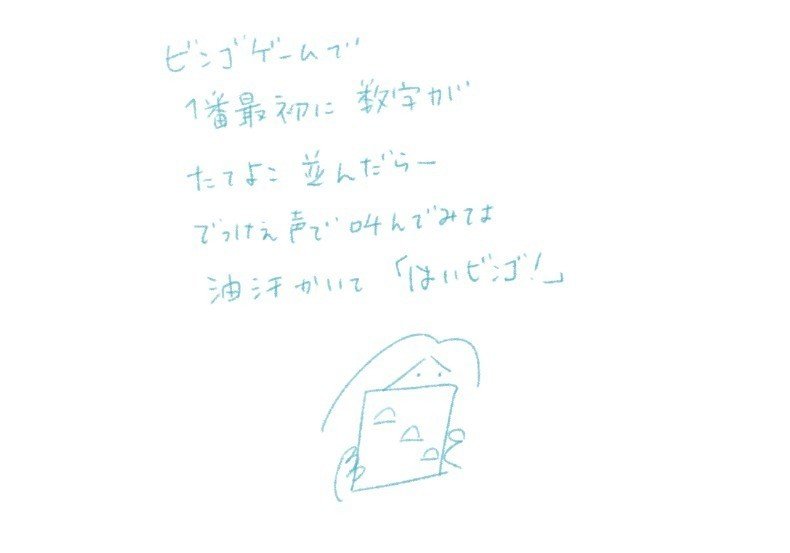 ビンゴゲームで
1番最初に 数字が
たてよこ 並んだらー
でっけぇ声で 叫んでみてよ
油汗かいて 「はいビンゴ!」